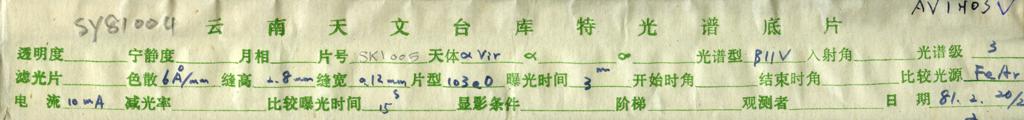 SY81004 云南天文台库特光谱底片 AVIHOSV
透明度 宁静度 月相 片号 SK1005 天体 α Vir α 光谱型 βIIV 入射角 光谱级 3
滤光片 色散 6Å/mm 缝高 2.8mm 缝宽 0.12mm 片型 103aO 曝光时间 3m 开始时角 结束时角 比较光源 FeAr
电流 10mA 减光率 比较曝光时间 15s 显影条件 阶梯 观测者 日期 81.2.20/2